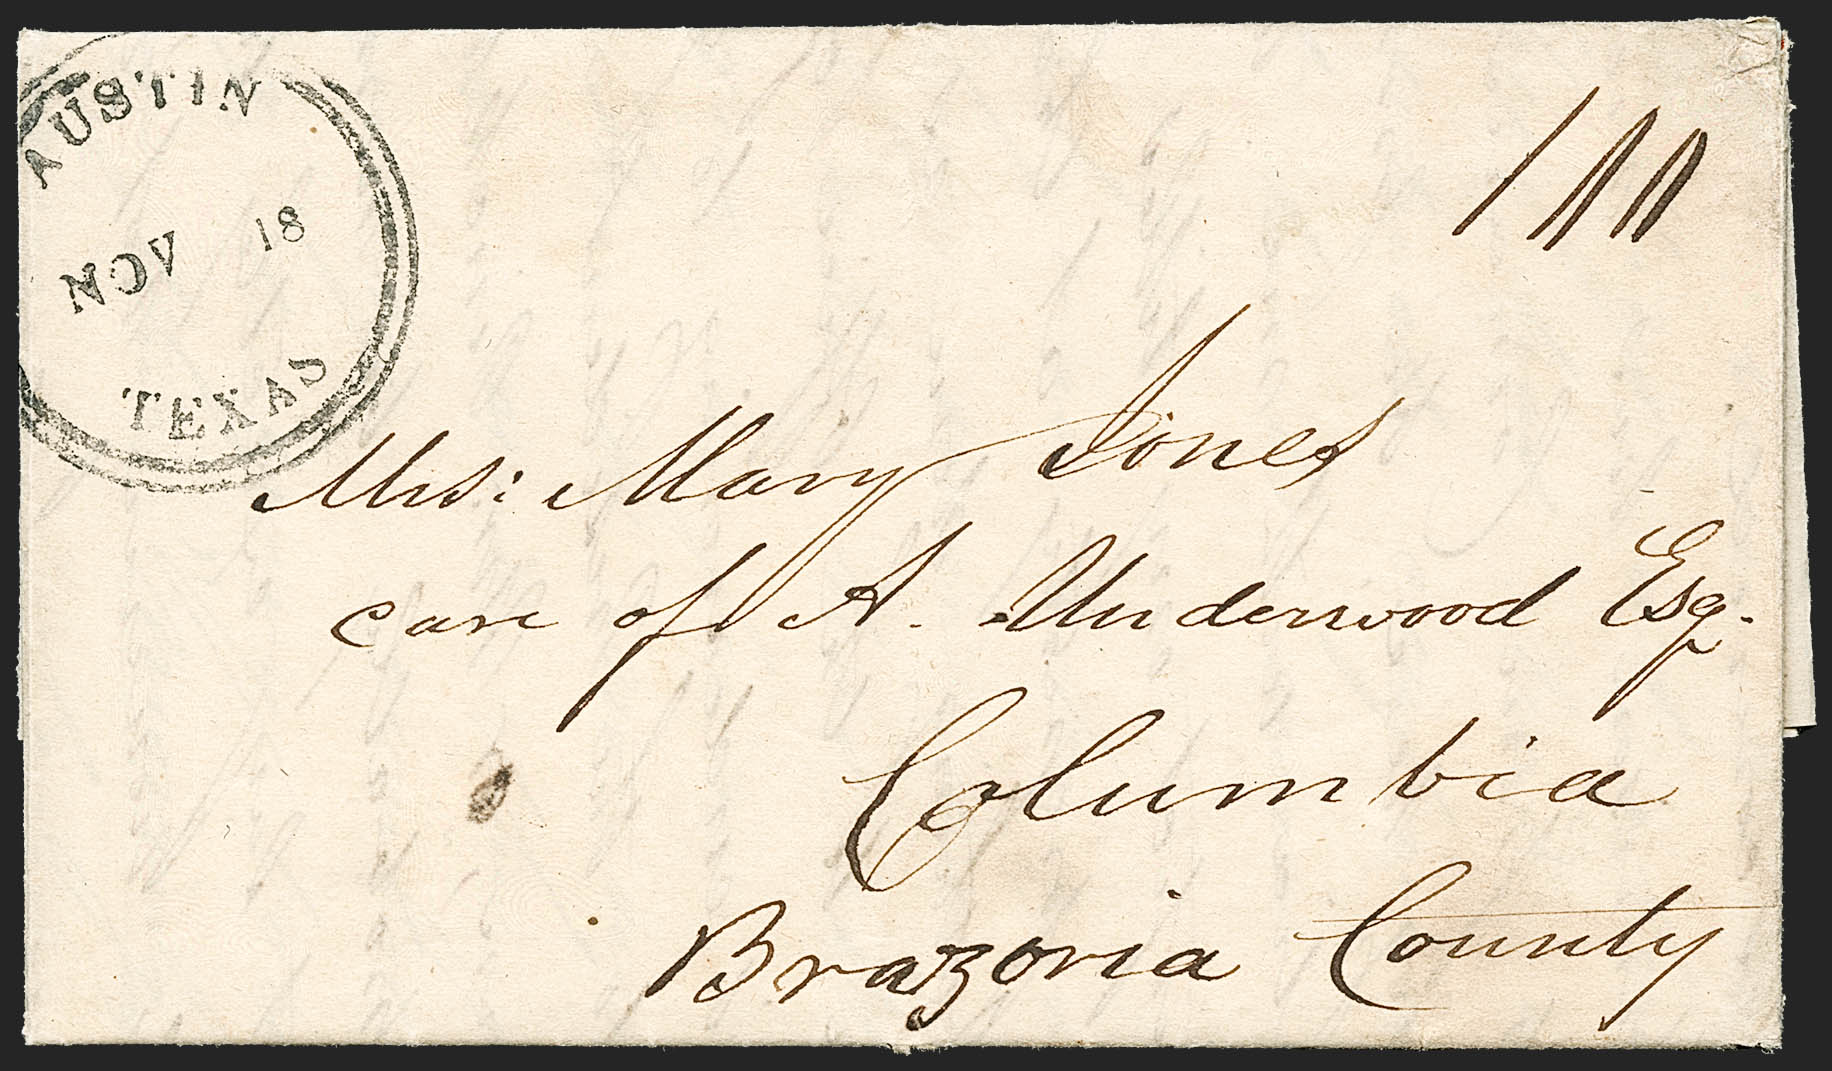 AUSTIN
NOV 18
TEXAS
Mrs: Mary Jones
care of A. Underwood Esq.
Columbia
Brazoria County